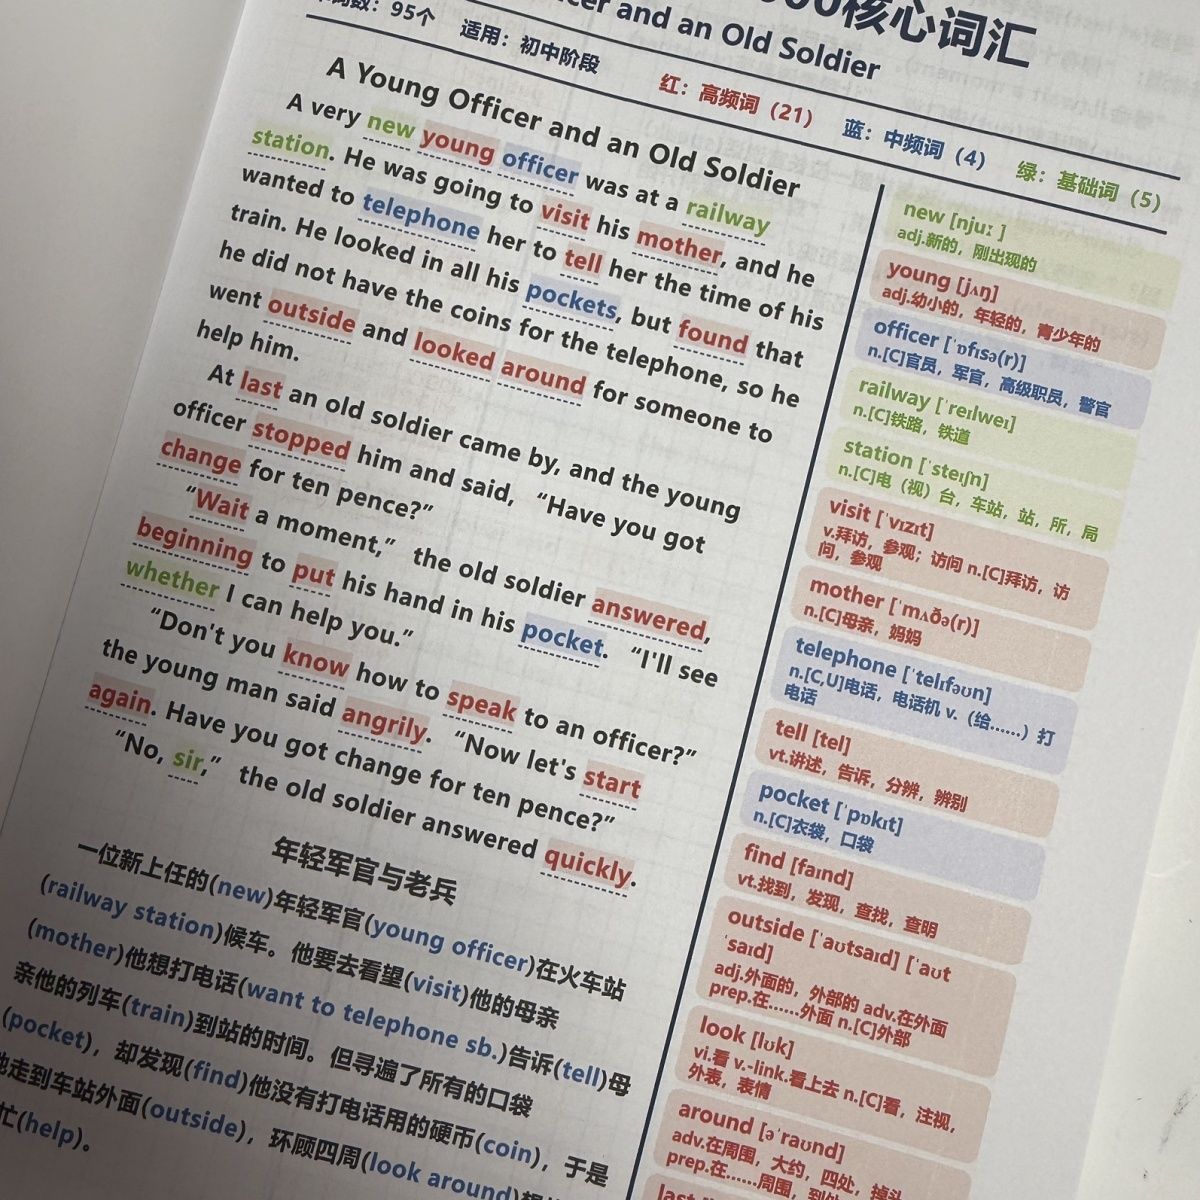 00核心词汇
cer and an Old Soldier
词数：95个 适用：初中阶段 红：高频词（21） 蓝：中频词（4） 绿：基础词（5）
A Young Officer and an Old Soldier
A very new young officer was at a railway
station. He was going to visit his mother, and he
wanted to telephone her to tell her the time of his
train. He looked in all his pockets, but found that
he did not have the coins for the telephone, so he
went outside and looked around for someone to
help him.
At last an old soldier came by, and the young
officer stopped him and said, “Have you got
change for ten pence?”
“Wait a moment,” the old soldier answered,
beginning to put his hand in his pocket. “I'll see
whether I can help you.”
“Don't you know how to speak to an officer?”
the young man said angrily. “Now let's start
again. Have you got change for ten pence?”
“No, sir,” the old soldier answered quickly.
年轻军官与老兵
一位新上任的(new)年轻军官(young officer)在火车站
(railway station)候车。他要去看望(visit)他的母亲
(mother)他想打电话(want to telephone sb.)告诉(tell)母
亲他的列车(train)到站的时间。但寻遍了所有的口袋
(pocket)，却发现(find)他没有打电话用的硬币(coin)，于是
他走到车站外面(outside)，环顾四周(look around)
忙(help)。
new [njuː ]
adj.新的，刚出现的
young [jʌŋ]
adj.幼小的，年轻的，青少年的
officer [ˈɒfɪsə(r)]
n.[C]官员，军官，高级职员，警官
railway [ˈreɪlweɪ]
n.[C]铁路，铁道
station [ˈsteɪʃn]
n.[C]电（视）台，车站，站，所，局
visit [ˈvɪzɪt]
v.拜访，参观；访问 n.[C]拜访，访
问，参观
mother [ˈmʌðə(r)]
n.[C]母亲，妈妈
telephone [ˈtelɪfəʊn]
n.[C,U]电话，电话机 v.（给……）打
电话
tell [tel]
vt.讲述，告诉，分辨，辨别
pocket [ˈpɒkɪt]
n.[C]衣袋，口袋
find [faɪnd]
vt.找到，发现，查找，查明
outside [ˈaʊtsaɪd] [ˈaʊt
ˈsaɪd]
adj.外面的，外部的 adv.在外面
prep.在……外面 n.[C]外部
look [lʊk]
vi.看 v.-link.看上去 n.[C]看，注视，
外表，表情
around [əˈraʊnd]
adv.在周围，大约，四处，掉头
prep.在……周围，到处
last